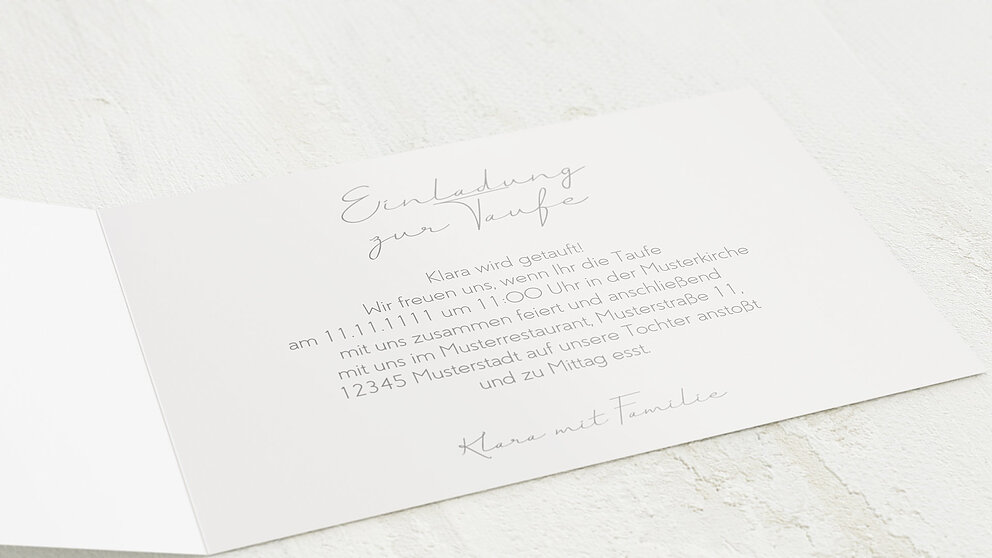 Einladung
zur Taufe
Klara wird getauft!
Wir freuen uns, wenn Ihr die Taufe
am 11.11.1111 um 11:00 Uhr in der Musterkirche
mit uns zusammen feiert und anschließend
mit uns im Musterrestaurant, Musterstraße 11,
12345 Musterstadt auf unsere Tochter anstoßt
und zu Mittag esst.
Klara mit Familie